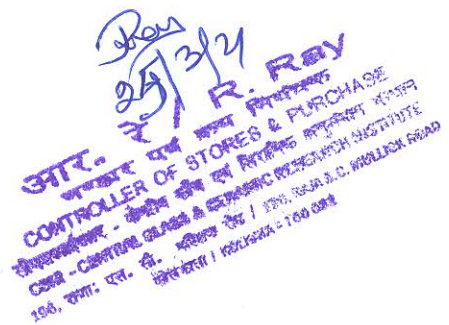 Ray
25/3/21
आर. रे / R. Ray
भण्डार एवं क्रय नियंत्रक
CONTROLLER OF STORES & PURCHASE
सीएसआईआर - केन्द्रीय काँच एवं सिरामिक अनुसंधान संस्थान
CSIR - CENTRAL GLASS & CERAMIC RESEARCH INSTITUTE
196, राजा एस. सी. मल्लिक रोड / 196, RAJA S.C. MULLICK ROAD
कोलकाता / KOLKATA - 700 032